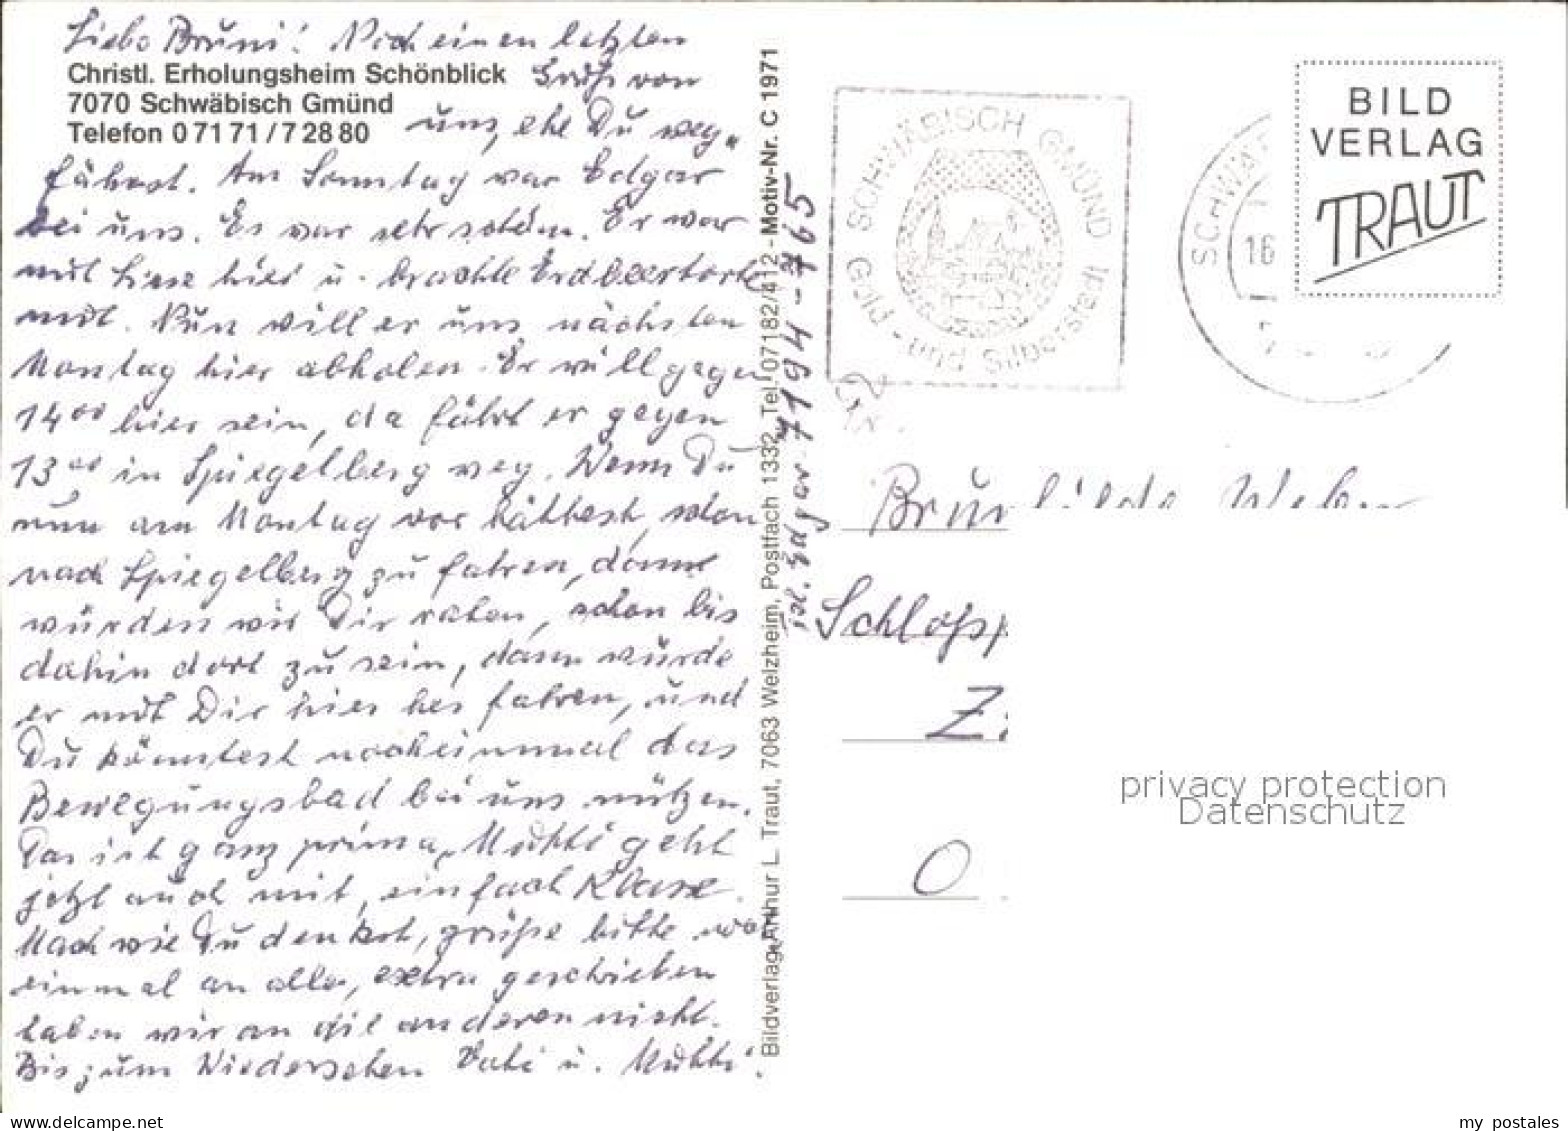 Liebe Bruni! Noch einen letzten
Christl. Erholungsheim Schönblick
Gruß von
7070 Schwäbisch Gmünd
Telefon 0 71 71 / 7 28 80
uns, ehe Du weg-
fährst. Am Sonntag war Edgar
bei uns. Es war sehr schön. Er war
mit Liese hier u. brachte Erdbeertorte
mit. Nun will er uns nächsten
Montag hier abholen. Er will gegen
14⁰⁰ hier sein, da fährt er gegen
13⁰⁰ in Spiegelberg weg. Wenn Du
nun am Montag vor hättest, schon
nach Spiegelberg zu fahren, dann
würden wir Dir raten, schon bis
dahin dort zu sein, dann würde
er mit Dir hier her fahren, und
Du könntest nocheinmal das
Bewegungsbad bei uns nützen.
Das ist ganz prima, Mutti geht
jetzt auch mit, einfach Klasse.
Mach wie Du denkst, grüße bitte noch
einmal an alle, extra geschrieben
haben wir an die anderen nicht.
Bis zum Wiedersehen Vati u. Mutti.
Bildverlag Arthur L. Traut, 7063 Welzheim, Postfach 1332, Tel. 07182/412 - Motiv-Nr. C 1971
Tel. Edgar 07194-765
SCHWÄBISCH GMÜND
Gold- und Silberstadt
SCHWÄ
16
BILD
VERLAG
TRAUT
Brunhilde Weber
Schloßp
Z
O
privacy protection
Datenschutz
www.delcampe.net
my_postales